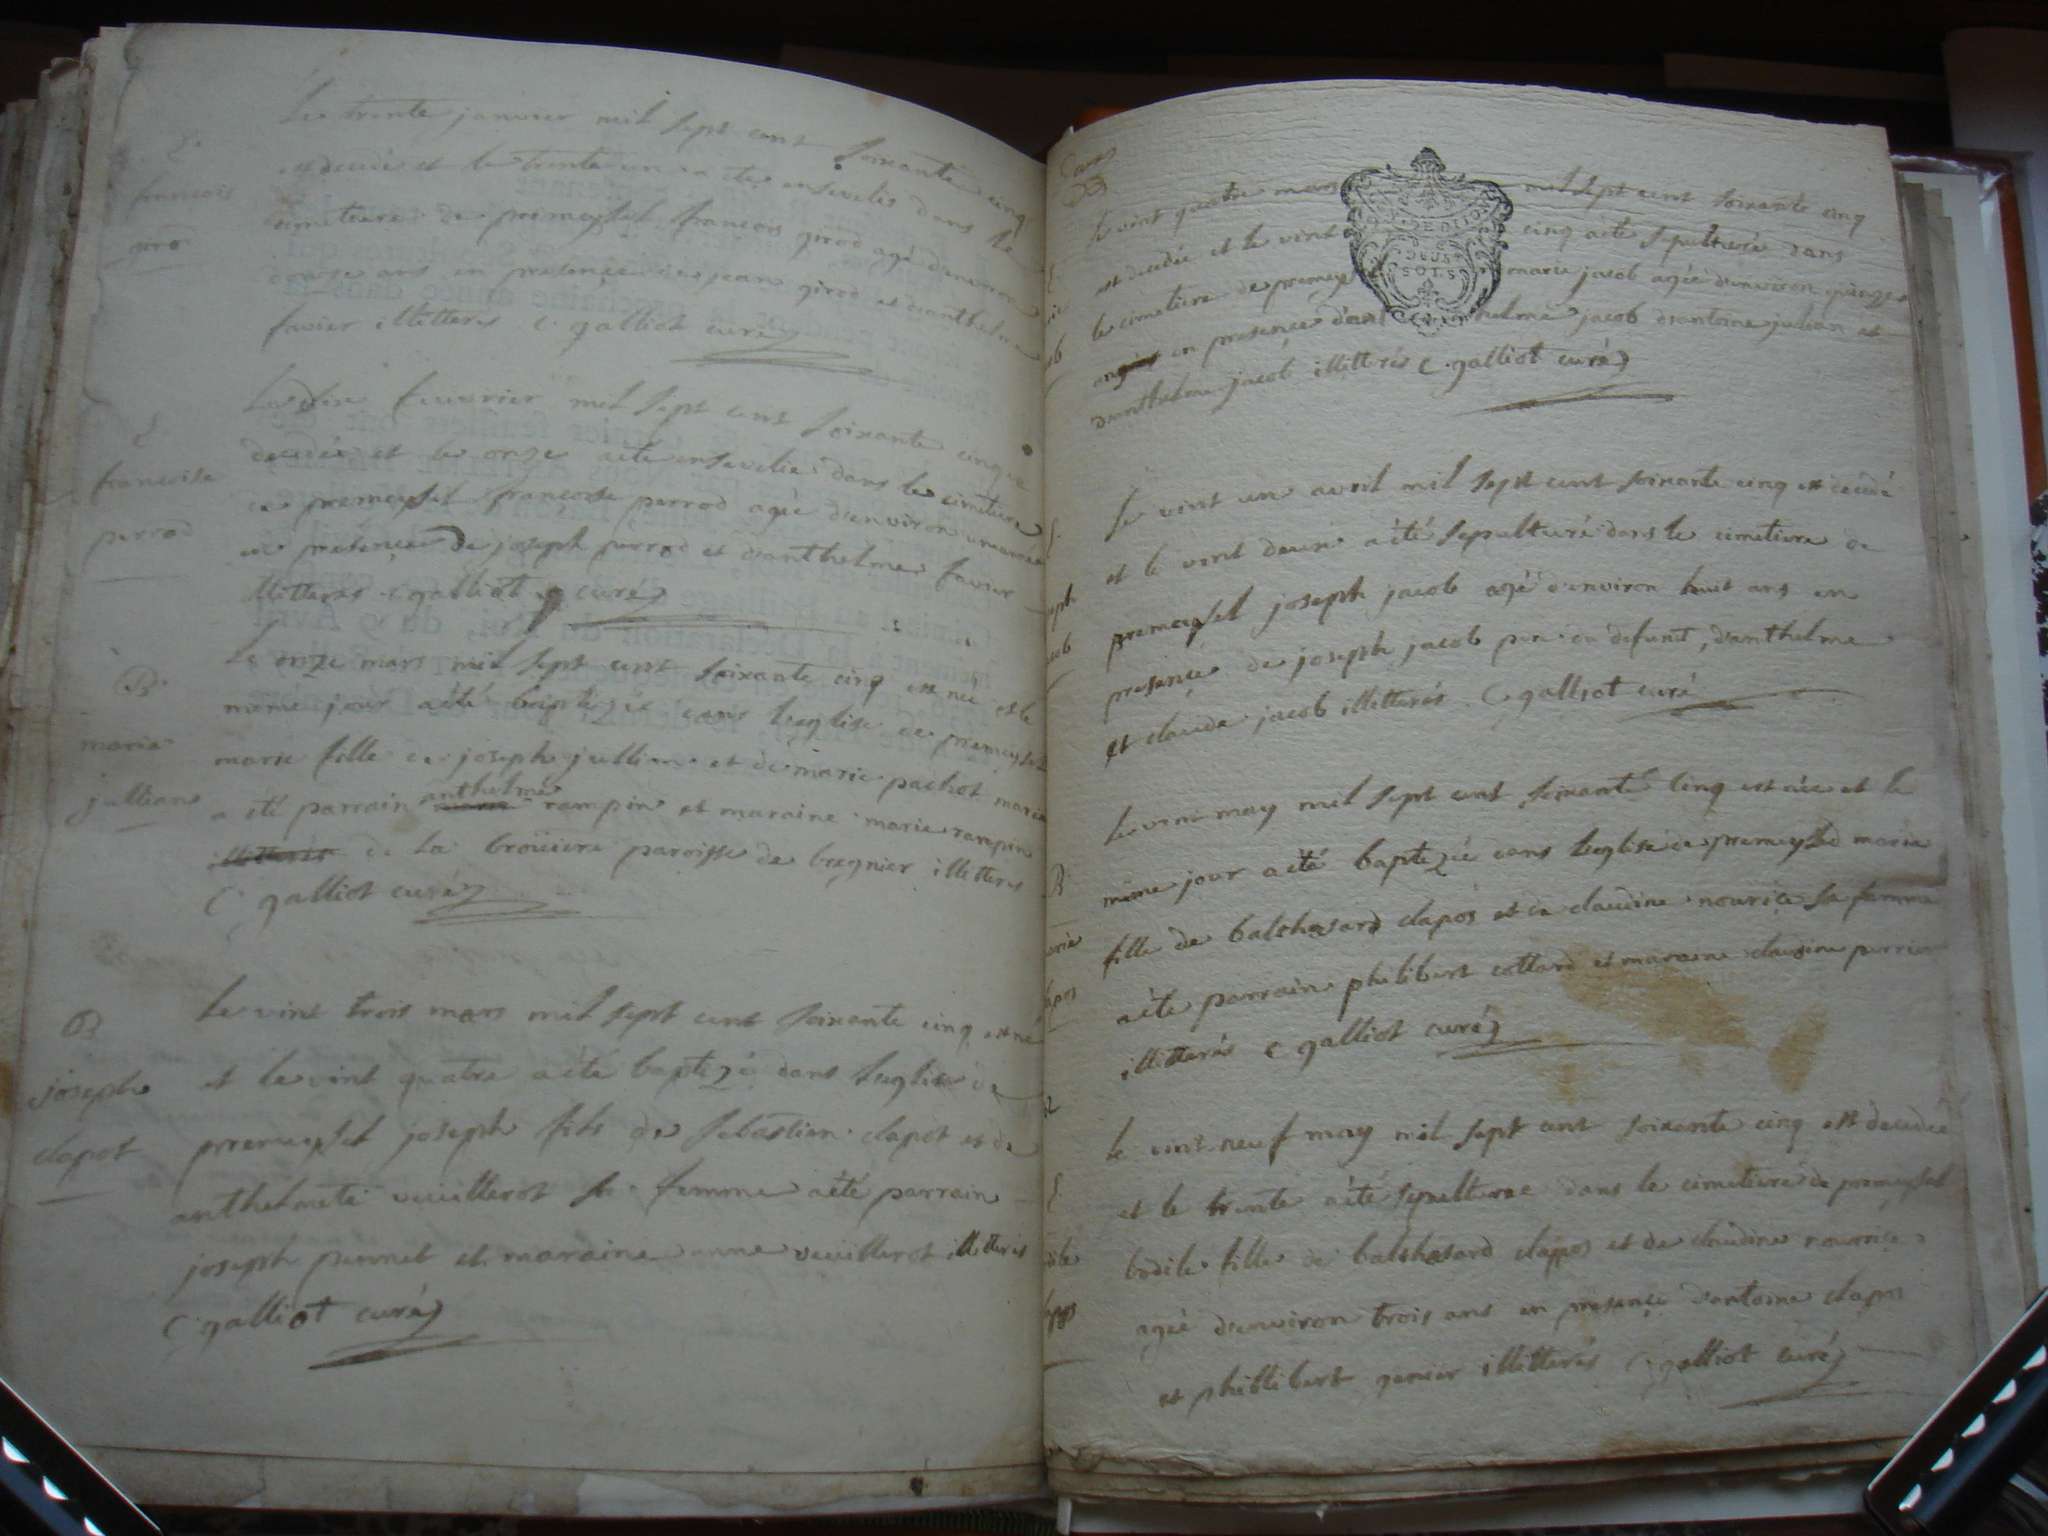 Le trente janvier mil sept cent soixante cinq
est decedé et le trente un a été enseveli dans le
cimetiere de premeysel francois girod agé denviron
onze ans en presence de jean girod et danthelme
favier illitterés C. galliot curé
francois
Le dix feuvrier mil sept cent soixante cinq
decedée et le onze a été ensevelie dans le cimetiere
de premeysel francoise perrod agée denviron
en presence de joseph perrod et danthelme favier
illitterés C. galliot curé
francoise
perrod
Le onze mars mil sept cent soixante cinq est née et le
meme jour a été baptizée dans leglise de premeysel
marie fille de joseph jullian et de marie pachot
a été parrain anthelme rampin et maraine marie rampin
de la broüiere paroisse de bregnier illitterés
C galliot curé
B
marie
jullian
Le vint trois mars mil sept cent soixante cinq est né
et le vint quatre a été baptizé dans leglise de
premeysel joseph fils de sebastien clapot et de
anthelmete veuillerot sa femme a été parrain
joseph pernnet et maraine anne veuillerot illitterés
C galliot curé
B
joseph
clapot
Le vint quatre mars mil sept cent soixante cinq
est decedée et le vint cinq a été sepulturée dans
le cimetiere de premeysel marie jacob agée denviron quinze
ans en presence danthelme jacob dantoine julian et
danthelme jacob illitterés C. galliot curé
DEUX
SOLS
Le vint un avril mil sept cent soixante cinq est decedé
et le vint deux a été sepulturé dans le cimetiere de
premeysel joseph jacob agé denviron huit ans en
presence de joseph jacob pere du defunt, danthelme
et claude jacob illitterés C galliot curé
Le vint may mil sept cent soixante cinq est née et le
meme jour a été baptizée dans leglise de premeysel marie
fille de balthasard clapos et de claudine nourice sa femme
a été parrain philibert cottard et maraine claudine perrin
illitterés C galliot curé
le vint neuf may mil sept cent soixante cinq est decedée
et le trente a été sepulturée dans le cimetiere de premeysel
bodile fille de balthasard clapos et de claudine nourrice
agée denviron trois ans en presence dantoine clapos
et phillibert genier illitterés C galliot curé